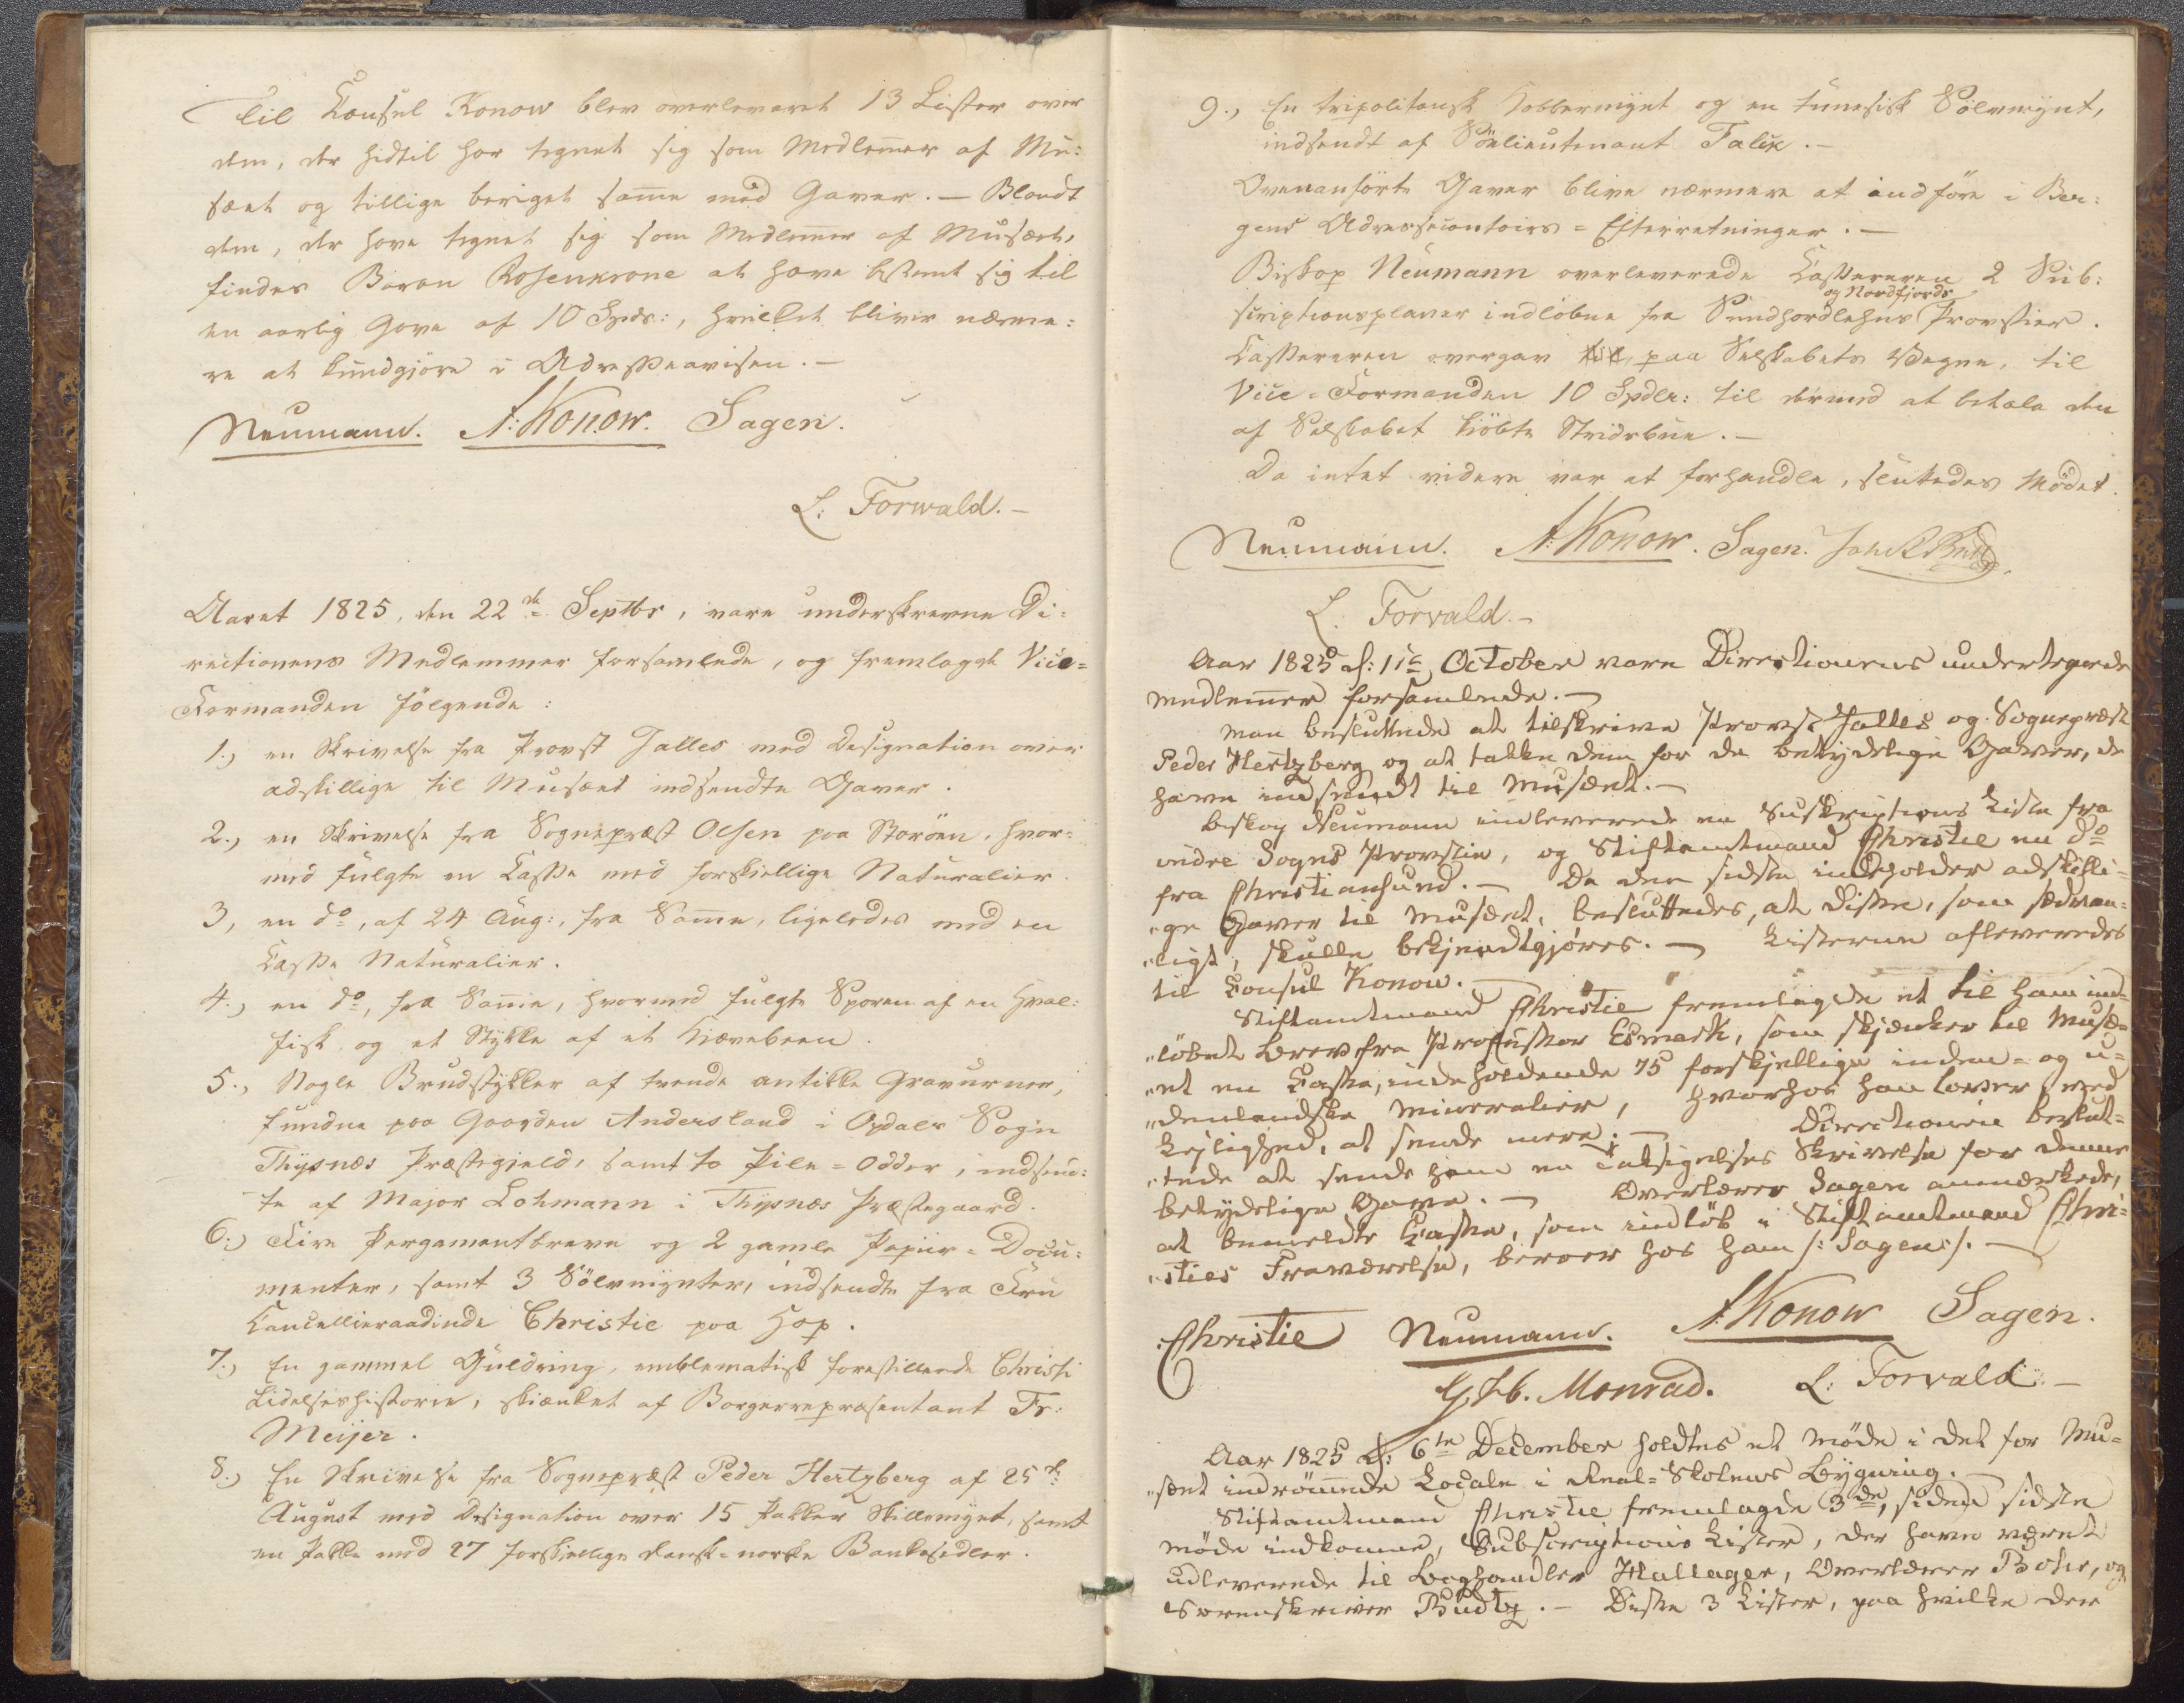 Til Consul Konow blev overleveret 13 Lister over
dem, der hidtil har tegnet sig som Medlemmer af Mu-
sæet og tillige beriget samme med Gaver. — Blandt
dem, der have tegnet sig som Medlemmer af Musæet,
findes Baron Rosenkrone at have bestemt sig til
en aarlig Gave af 10 Spdr:, hvilket bliver nærme-
re at kundgjøre i Adresseavisen. —
Neumann. A: Konow. Sagen.
L. Forwald. —
Aaret 1825, den 22de Septbr, vare underskrevne Di-
rectionens Medlemmer forsamlede, og fremlagde Vice-
Formanden følgende:
1.) en Skrivelse fra Provst Jalles med Designation over
adskillige til Musæet indsendte Gaver.
2.) en Skrivelse fra Sognepræst Olsen paa Storöen, hvor-
med fulgte en Casse med forskiellige Naturalier.
3, en do, af 24 Aug:, fra Samme, ligeledes med en
Casse Naturalier.
4.) en do, fra Samme, hvormed fulgte Sporen af en Hval-
fisk og et Stykke af et Kiævebeen.
5., Nogle Brudstykker af trende antikke Gravurner,
fundne paa Gaarden Andersland i Opdals Sogn
Thysnæs Præstegjeld, samt to Pile-Odder, indsend-
te af Major Lohmann i Thysnæs Præstegaard.
6.) Fire Pergamentbreve og 2 gamle Papiir-Docu-
menter, samt 3 Sölvmynter, indsendte fra Fru
Cancellieraadinde Christie paa Hop.
7.) En gammel Guldring, emblematisk forestillende Christi
Lidelseshistorie, skiænket af Borgerrepræsentant Fr:
Meijer.
8.) En Skrivelse fra Sognepræst Peder Hertzberg af 25de
August med Designation over 15 Pakker Skillemynt, samt
en Pakke med 27 forskiellige dansk-norske Bankosedler.
9., En tripolitansk Kobbermynt og en tunesisk Sölvmynt,
indsendt af Söelieutenant Falck. —
Ovenanförte Gaver blive nærmere at indföre i Ber-
gens Adressecontoirs-Efterretninger. —
Biskop Neumann overleverede Cassereren 2 Sub-
og Nordfjords
scriptionsplaner indløbne fra Søndhordlehns Provstier.
Cassereren overgav til, paa Selskabets Vegne, til
Vice-Formanden 10 Spdlr: til dermed at betale den
af Selskabet kiöbte Stridsbue. —
Da intet videre var at forhandle, sluttedes Mödet.
Neumann. A: Konow. Sagen.
L. Forvald. —
Aar 1825 d: 11te October vare Directionens undertegnede
medlemmer forsamlede. —
Man besluttede at tilskrive Provst Jalles og Sognepræst
Peder Hertzberg og at takke dem for de betydelige Gaver, de
have indsendt til Musæet. —
Biskop Neumann indleverede en Subskriptions Liste fra
indre Sogns Provstie, og Stiftamtmand Christie en do
fra Christiansund. — Da den sidste indeholder adskilli-
„ge Gaver til Musæet, besluttedes, at disse, som sædvan-
„ligt, skulle bekjendtgjøres. — Listerne afleveredes
til Consul Konow. —
Stiftamtmand Christie fremlagde et til ham ind-
„löbet Brev fra Professor Esmark, som skjænker til Musæ-
„et en Casse, indeholdende 75 forskjellige inden- og u-
„denlandske Mineralier, hvorhos han lover, med
Leylighed, at sende mere. — Directionen beslut-
„tede at sende ham en Taksigelses Skrivelse for denne
betydelige Gave. — Overlærer Sagen anmærkede,
at bemeldte Casse, som indlöb i Stiftamtmand Chri-
„sties Fraværelse, beroer hos ham /: Sagen :/. —
Christie Neumann. A: Konow Sagen.
G. Hb. Monrad. L: Forvald. —
Aar 1825 d: 6te December holdtes et Möde i det for Mu-
„sæet indrömmede Locale i Real-Skolens Bygning. —
Stiftamtmand Christie fremlagde 3de, siden sidste
Möde indkomne, Subscriptions Lister, der have været
udleverede til Boghandler Hallager, Overlærer Bohr, og
Sorenskriver Budtz. — Disse 3 Lister, paa hvilke der